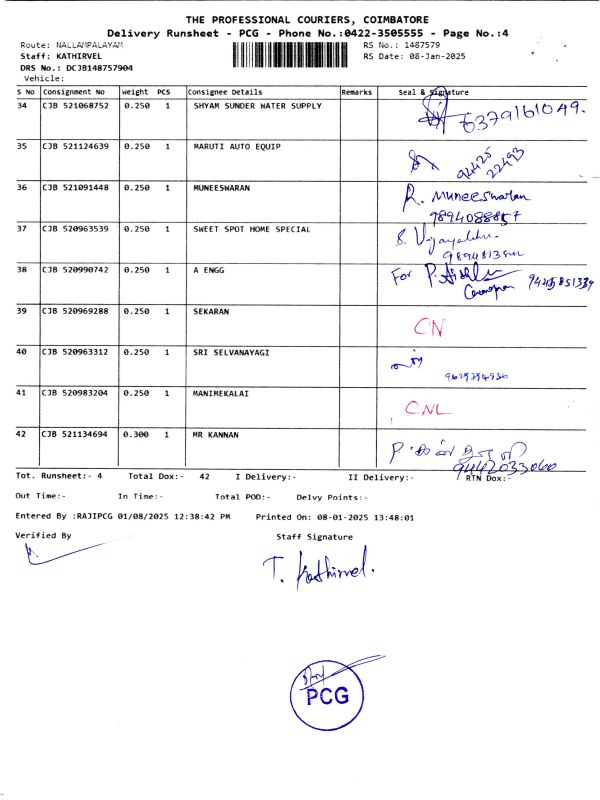 THE PROFESSIONAL COURIERS, COIMBATORE
Delivery Runsheet - PCG - Phone No.:0422-3505555 - Page No.:4
Route: NALLAMPALAYAM RS No.: 1487579
Staff: KATHIRVEL RS Date: 08-Jan-2025
DRS No.: DCJB148757904
Vehicle:
S No Consignment No Weight PCS Consignee Details Remarks Seal & Signature
34 CJB 521068752 0.250 1 SHYAM SUNDER WATER SUPPLY 6379161049.
35 CJB 521124639 0.250 1 MARUTI AUTO EQUIP 94425
22493
36 CJB 521091448 0.250 1 MUNEESWARAN R. Muneeswaran
9894088857
37 CJB 520963539 0.250 1 SWEET SPOT HOME SPECIAL
38 CJB 520990742 0.250 1 A ENGG For
39 CJB 520969288 0.250 1 SEKARAN CN
40 CJB 520963312 0.250 1 SRI SELVANAYAGI
41 CJB 520983204 0.250 1 MANIMEKALAI CNL
42 CJB 521134694 0.300 1 MR KANNAN
9442033060
Tot. Runsheet:- 4 Total Dox:- 42 I Delivery:- II Delivery:- RTN Dox:-
Out Time:- In Time:- Total POD:- Delvy Points:-
Entered By :RAJIPCG 01/08/2025 12:38:42 PM Printed On: 08-01-2025 13:48:01
Verified By Staff Signature
T. Kathirvel.
PCG